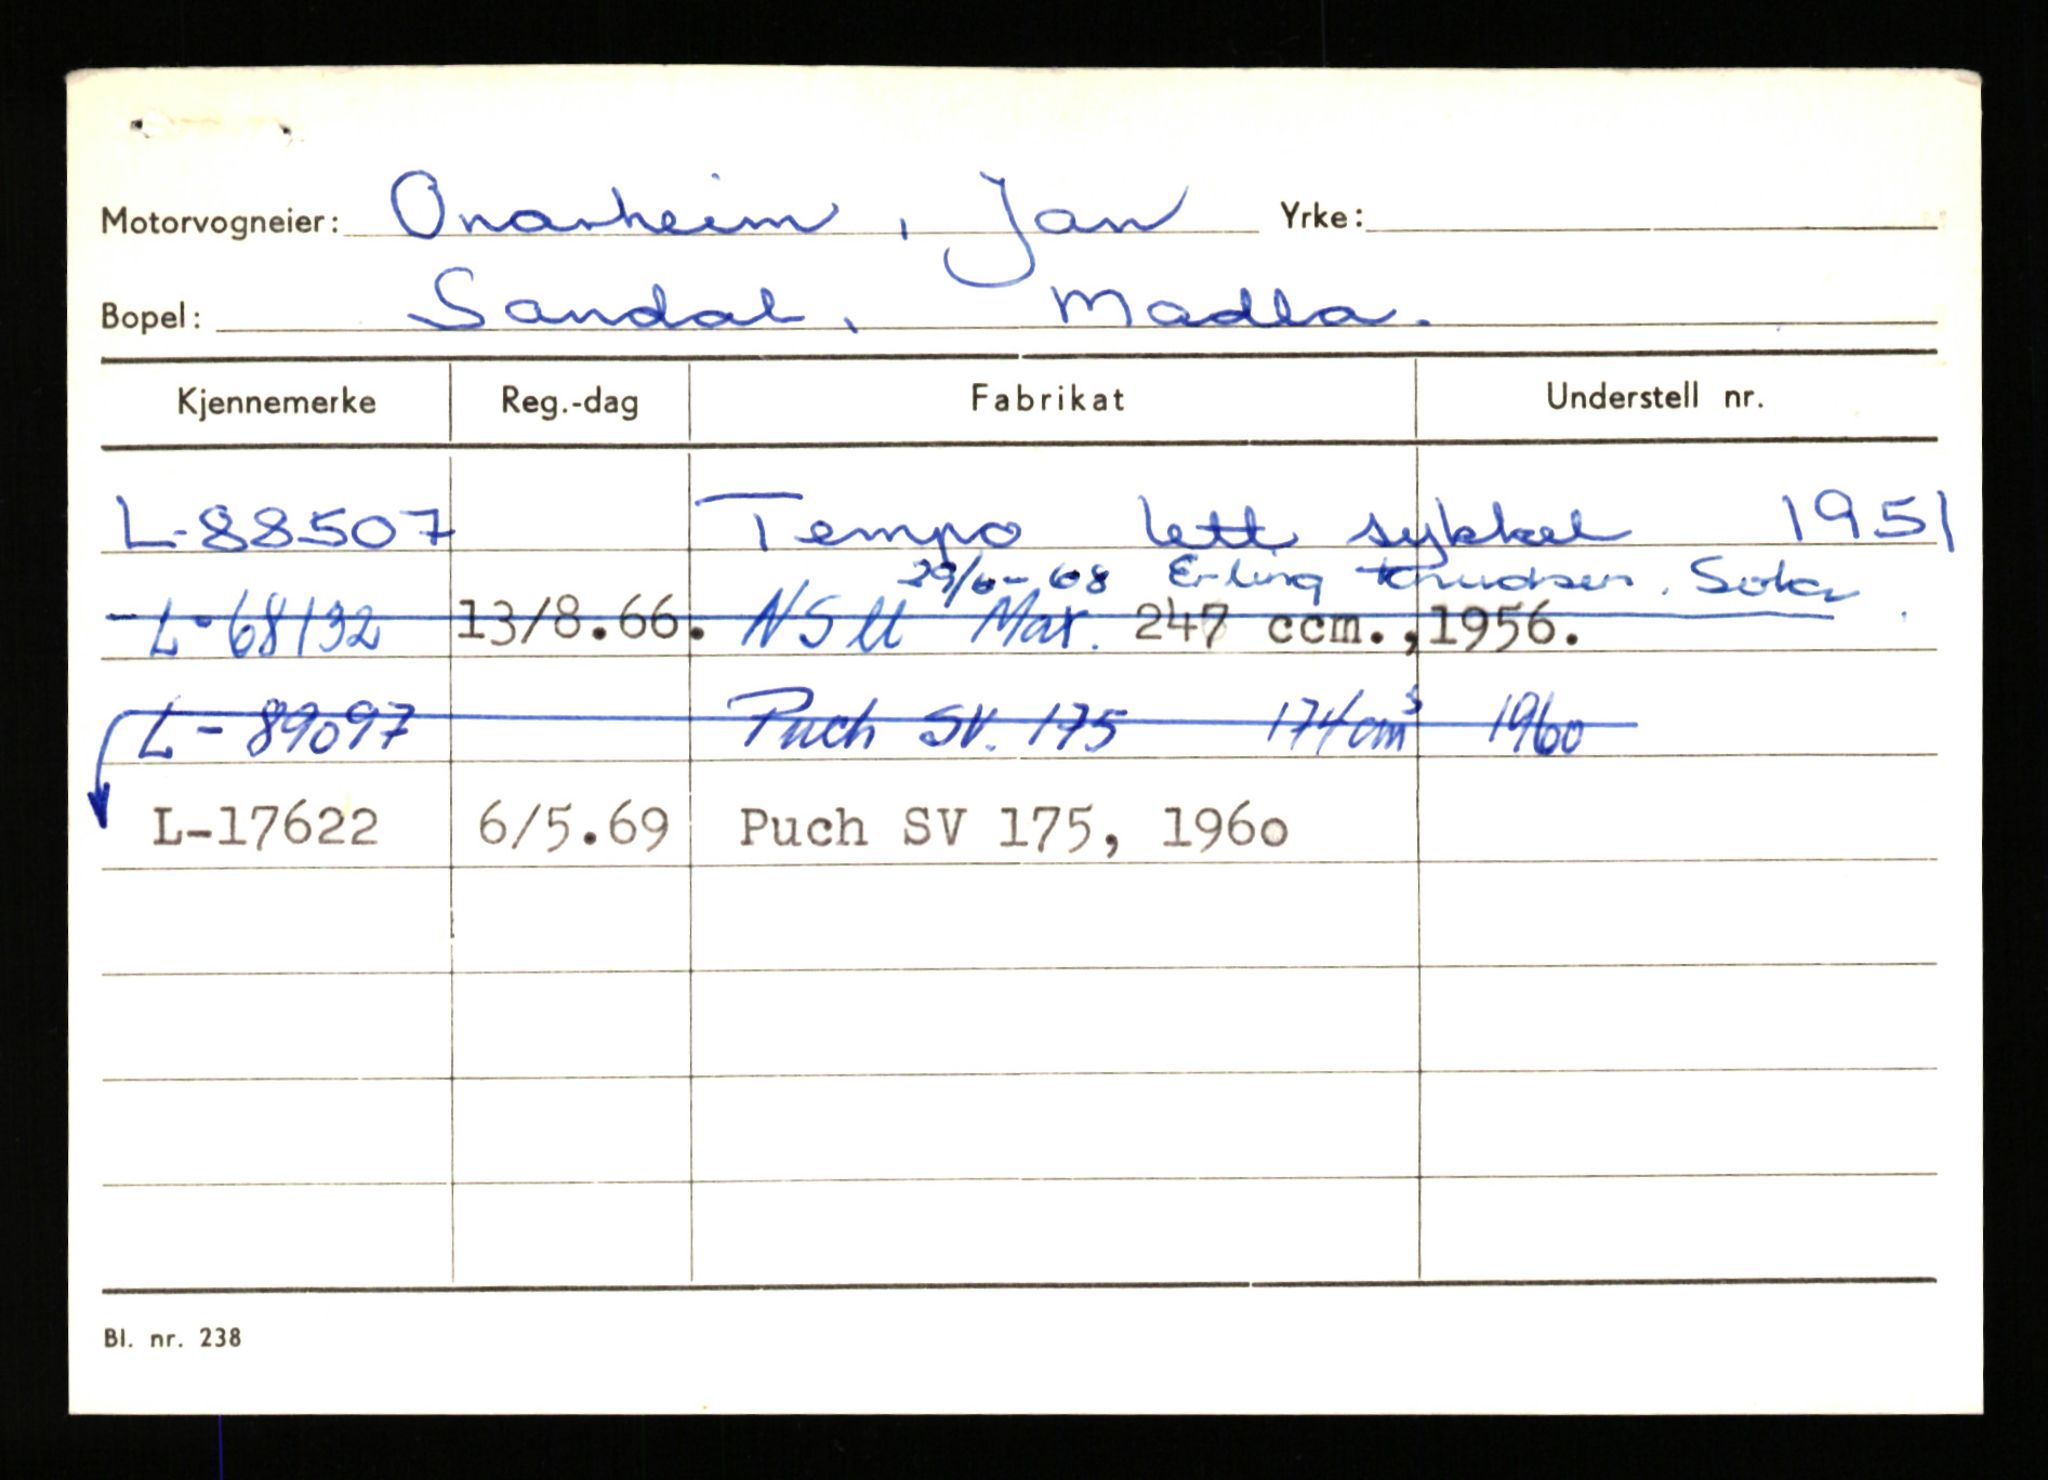 Motorvogneier: Onarheim, Jan Yrke:
Bopel: Sandal, Madla.
Kjennemerke Reg.-dag Fabrikat Understell nr.
L-88507 Tempo lett sykkel 1951
29/6-68 Erling Knudsen, Sola
L-68132 13/8.66. NSU Max. 247 ccm., 1956.
L-89097 Puch SV. 175 174 cm³ 1960
L-17622 6/5.69 Puch SV 175, 1960
Bl. nr. 238